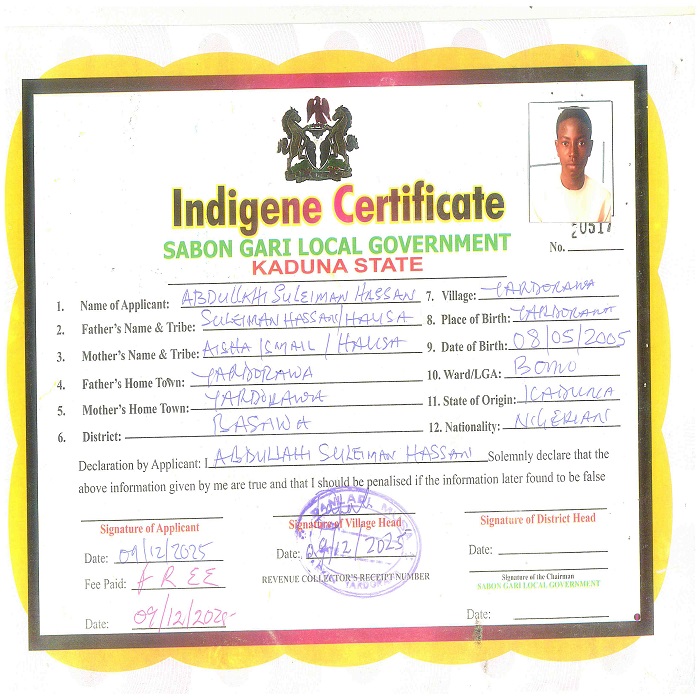 Indigene Certificate
SABON GARI LOCAL GOVERNMENT
KADUNA STATE
No. 20517
1. Name of Applicant: ABDULLAHI SULEIMAN HASSAN
7. Village: YARDORAWA
2. Father's Name & Tribe: SULEIMAN HASSAN/HAUSA
8. Place of Birth: YARDORAWA
3. Mother's Name & Tribe: AISHA ISMAIL / HAUSA
9. Date of Birth: 08/05/2005
4. Father's Home Town: YARDORAWA
10. Ward/LGA: BOMO
5. Mother's Home Town: YARDORAWA
11. State of Origin: KADUNA
6. District: BASAWA
12. Nationality: NIGERIAN
Declaration by Applicant: I ABDULLAHI SULEIMAN HASSAN Solemnly declare that the
above information given by me are true and that I should be penalised if the information later found to be false
Signature of Applicant
Signature of Village Head
Signature of District Head
Date: 09/12/2025
Date: 29/12/2025
Date:
Fee Paid: FREE
REVENUE COLLECTOR'S RECEIPT NUMBER
Signature of the Chairman
SABON GARI LOCAL GOVERNMENT
Date: 09/12/2025
Date: